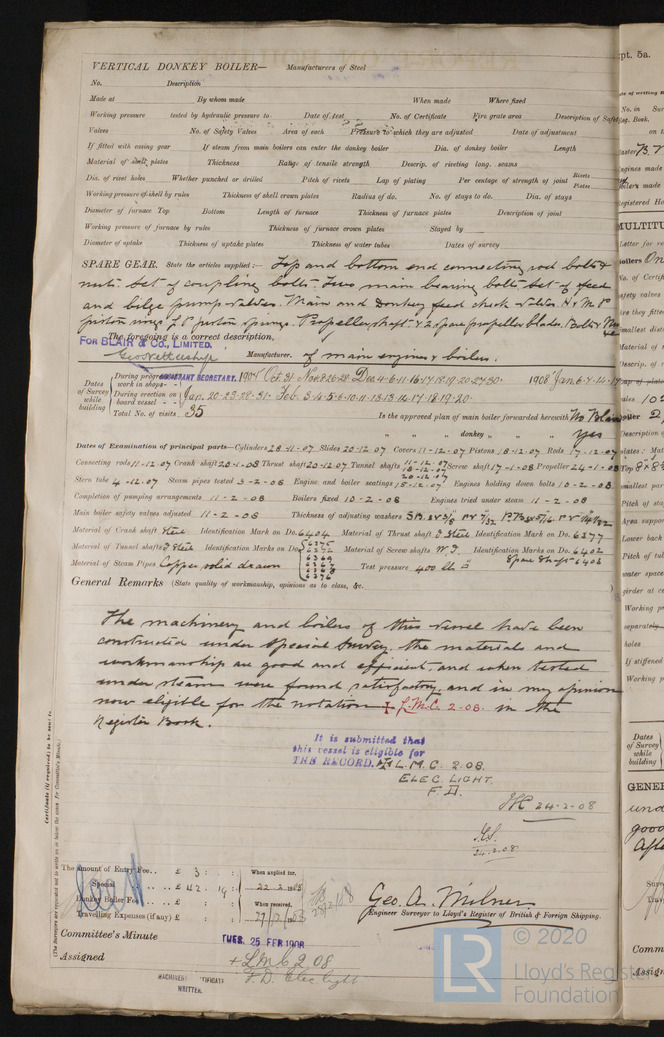 VERTICAL DONKEY BOILER— Manufacturers of Steel
No. Description
Made at By whom made When made Where fixed
Working pressure tested by hydraulic pressure to Date of test No. of Certificate Fire grate area Description of Safety
Valves No. of Safety Valves Area of each Pressure to which they are adjusted Date of adjustment
If fitted with easing gear If steam from main boilers can enter the donkey boiler Dia. of donkey boiler Length
Material of shell plates Thickness Range of tensile strength Descrip. of riveting long. seams
Dia. of rivet holes Whether punched or drilled Pitch of rivets Lap of plating Per centage of strength of joint Rivets Plates
Working pressure of shell by rules Thickness of shell crown plates Radius of do. No. of stays to do. Dia. of stays
Diameter of furnace Top Bottom Length of furnace Thickness of furnace plates Description of joint
Working pressure of furnace by rules Thickness of furnace crown plates Stayed by
Diameter of uptake Thickness of uptake plates Thickness of water tubes Dates of survey
SPARE GEAR. State the articles supplied:— Top and bottom end connecting rod bolts &
nuts set of coupling bolts. Two main bearing bolts set of feed
and bilge pump valves. Main and donkey feed check valves H & M P
piston rings L P piston springs. Propeller shaft & 2 spare propeller blades. Bolts &
The foregoing is a correct description,
FOR BLAIR & CO., LIMITED.
Manufacturer. of main engines & boilers.
ASSISTANT SECRETARY.
Dates of Survey while building
During progress of work in shops - - 1907 Oct. 31 Nov. 8. 26. 28 Dec 4. 6. 11. 16. 17. 18. 19. 20. 27. 30. 1908 Jan 6. 7. 14. 17
During erection on board vessel - - - Jan. 20. 23. 28. 31. Feb. 3. 4. 5. 6. 10. 11. 13. 14. 17. 18. 19. 20.
Total No. of visits 35 Is the approved plan of main boiler forwarded herewith No
" " " donkey " " " yes
Dates of Examination of principal parts—Cylinders 28-11-07 Slides 20-12-07 Covers 11-12-07 Pistons 18-12-07 Rods 17-12-07
Connecting rods 11-12-07 Crank shaft 20-1-08 Thrust shaft 20-12-07 Tunnel shafts 11-12-07 18-12-07 20-12-07 Screw shaft 17-1-08 Propeller 24-1-08
Stern tube 4-12-07 Steam pipes tested 3-2-08 Engine and boiler seatings 18-12-07 Engines holding down bolts 10-2-08
Completion of pumping arrangements 11-2-08 Boilers fixed 10-2-08 Engines tried under steam 11-2-08
Main boiler safety valves adjusted 11-2-08 Thickness of adjusting washers
Material of Crank shaft Steel Identification Mark on Do. 6404 Material of Thrust shaft I Steel Identification Mark on Do. 6377
Material of Tunnel shafts I Steel Identification Marks on Do. 6375 6372 Material of Screw shafts W. I. Identification Marks on Do. 6402
Material of Steam Pipes Copper solid drawn 6369 6367 6368 6376 Test pressure 400 lbs Spare shaft 6403
General Remarks (State quality of workmanship, opinions as to class, &c.
The machinery and boilers of this vessel have been
constructed under special survey, the materials and
workmanship are good and efficient, and when tested
under steam were found satisfactory, and in my opinion
now eligible for the notation + L.M.C. 2-08. in the
Register Book.
It is submitted that
this vessel is eligible for
THE RECORD. + L.M.C. 2.08.
ELEC. LIGHT.
F.D.
24-2-08
24.2.08
The amount of Entry Fee.. £ 3 : : When applied for,
Special £ 42 . 19 : 22.2.1908
Donkey Boiler Fee £ : : When received,
Travelling Expenses (if any) £ : :
Geo. A. Milner
Engineer Surveyor to Lloyd's Register of British & Foreign Shipping.
Committee's Minute TUES. 25 FEB 1908
Assigned + L.M.C 2 08
F.D. Elec light
MACHINERY CERTIFICATE
WRITTEN.
Certificate (if required) to be sent to
(The Surveyors are requested not to write on or below the space for Committee's Minute.)
© 2020
Lloyd's Register
Foundation
LR